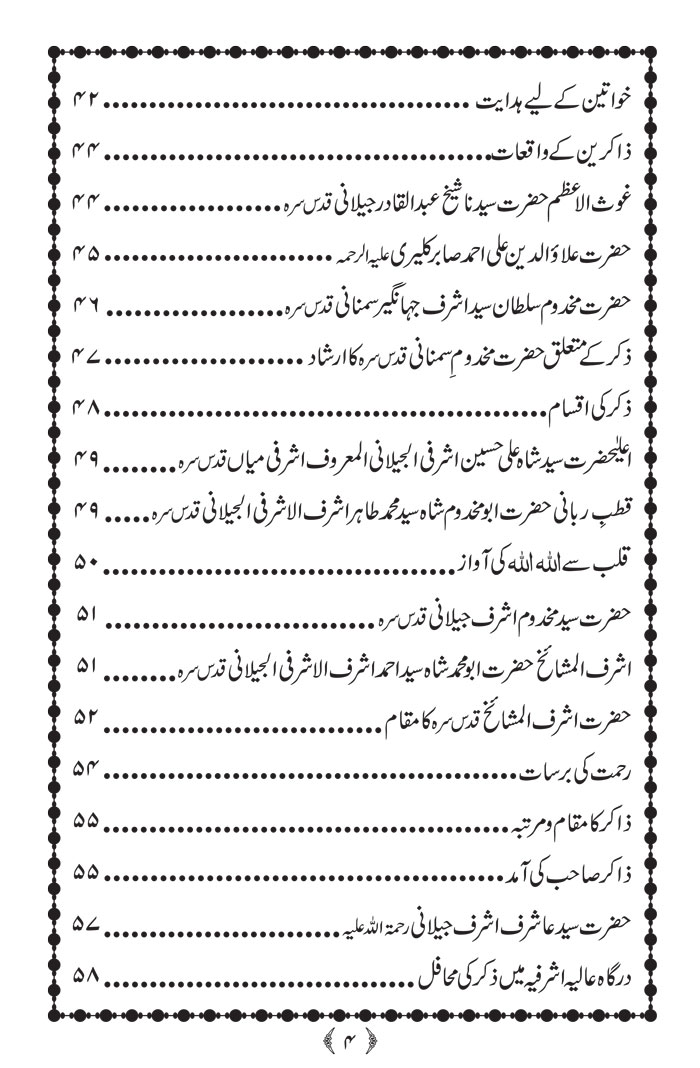 خواتین کے لیے ہدایت ........................................ ۴۲
ذاکرین کے واقعات.......................................... ۴۴
غوث الاعظم حضرت سیدنا شیخ عبدالقادر جیلانی قدس سرہ................... ۴۴
حضرت علاؤالدین علی احمد صابر کلیری علیہ الرحمہ ......................... ۴۵
حضرت مخدوم سلطان سید اشرف جہانگیر سمنانی قدس سرہ................... ۴۶
ذکر کے متعلق حضرت مخدومِ سمنانی قدس سرہ کا ارشاد ..................... ۴۷
ذکر کی اقسام................................................ ۴۸
اعلیٰحضرت سید شاہ علی حسین اشرفی الجیلانی المعروف اشرفی میاں قدس سرہ........ ۴۹
قطبِ ربانی حضرت ابو مخدوم شاہ سید محمد طاہر اشرف الاشرفی الجیلانی قدس سرہ..... ۴۹
قلب سے اللہ اللہ کی آواز...................................... ۵۰
حضرت سید مخدوم اشرف جیلانی قدس سرہ ............................. ۵۱
اشرف المشائخ حضرت ابو محمد شاہ سید احمد اشرف الاشرفی الجیلانی قدس سرہ........ ۵۱
حضرت اشرف المشائخ قدس سرہ کا مقام .............................. ۵۲
رحمت کی برسات............................................. ۵۴
ذاکر کا مقام و مرتبہ............................................ ۵۵
ذاکر صاحب کی آمد........................................... ۵۵
حضرت سید عاشرف اشرف جیلانی رحمۃ اللہ علیہ.......................... ۵۷
درگاہ عالیہ اشرفیہ میں ذکر کی محافل .................................. ۵۸
﴿ ۴ ﴾